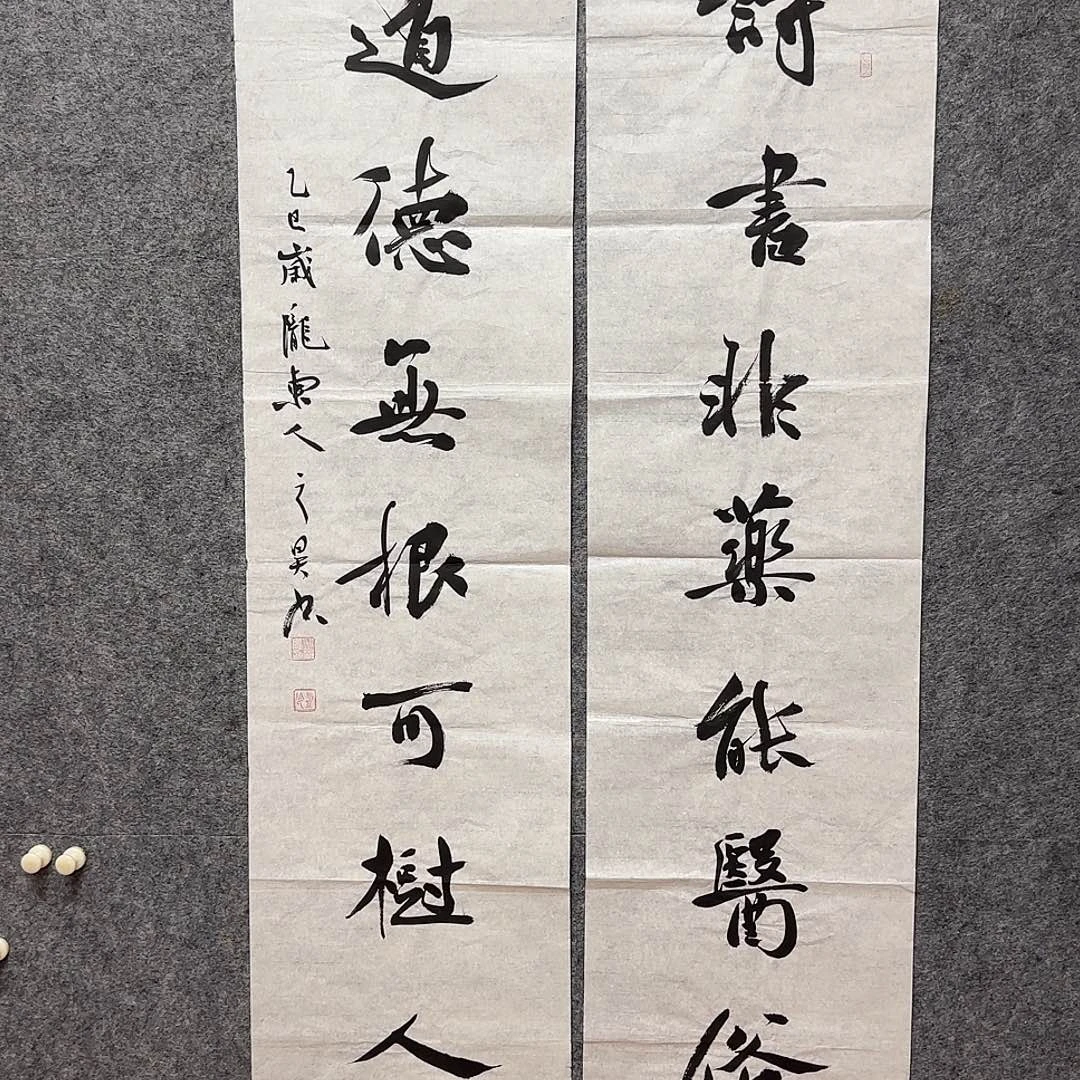 詩書非藥能醫俗
道德無根可樹人
乙巳歲隴東人